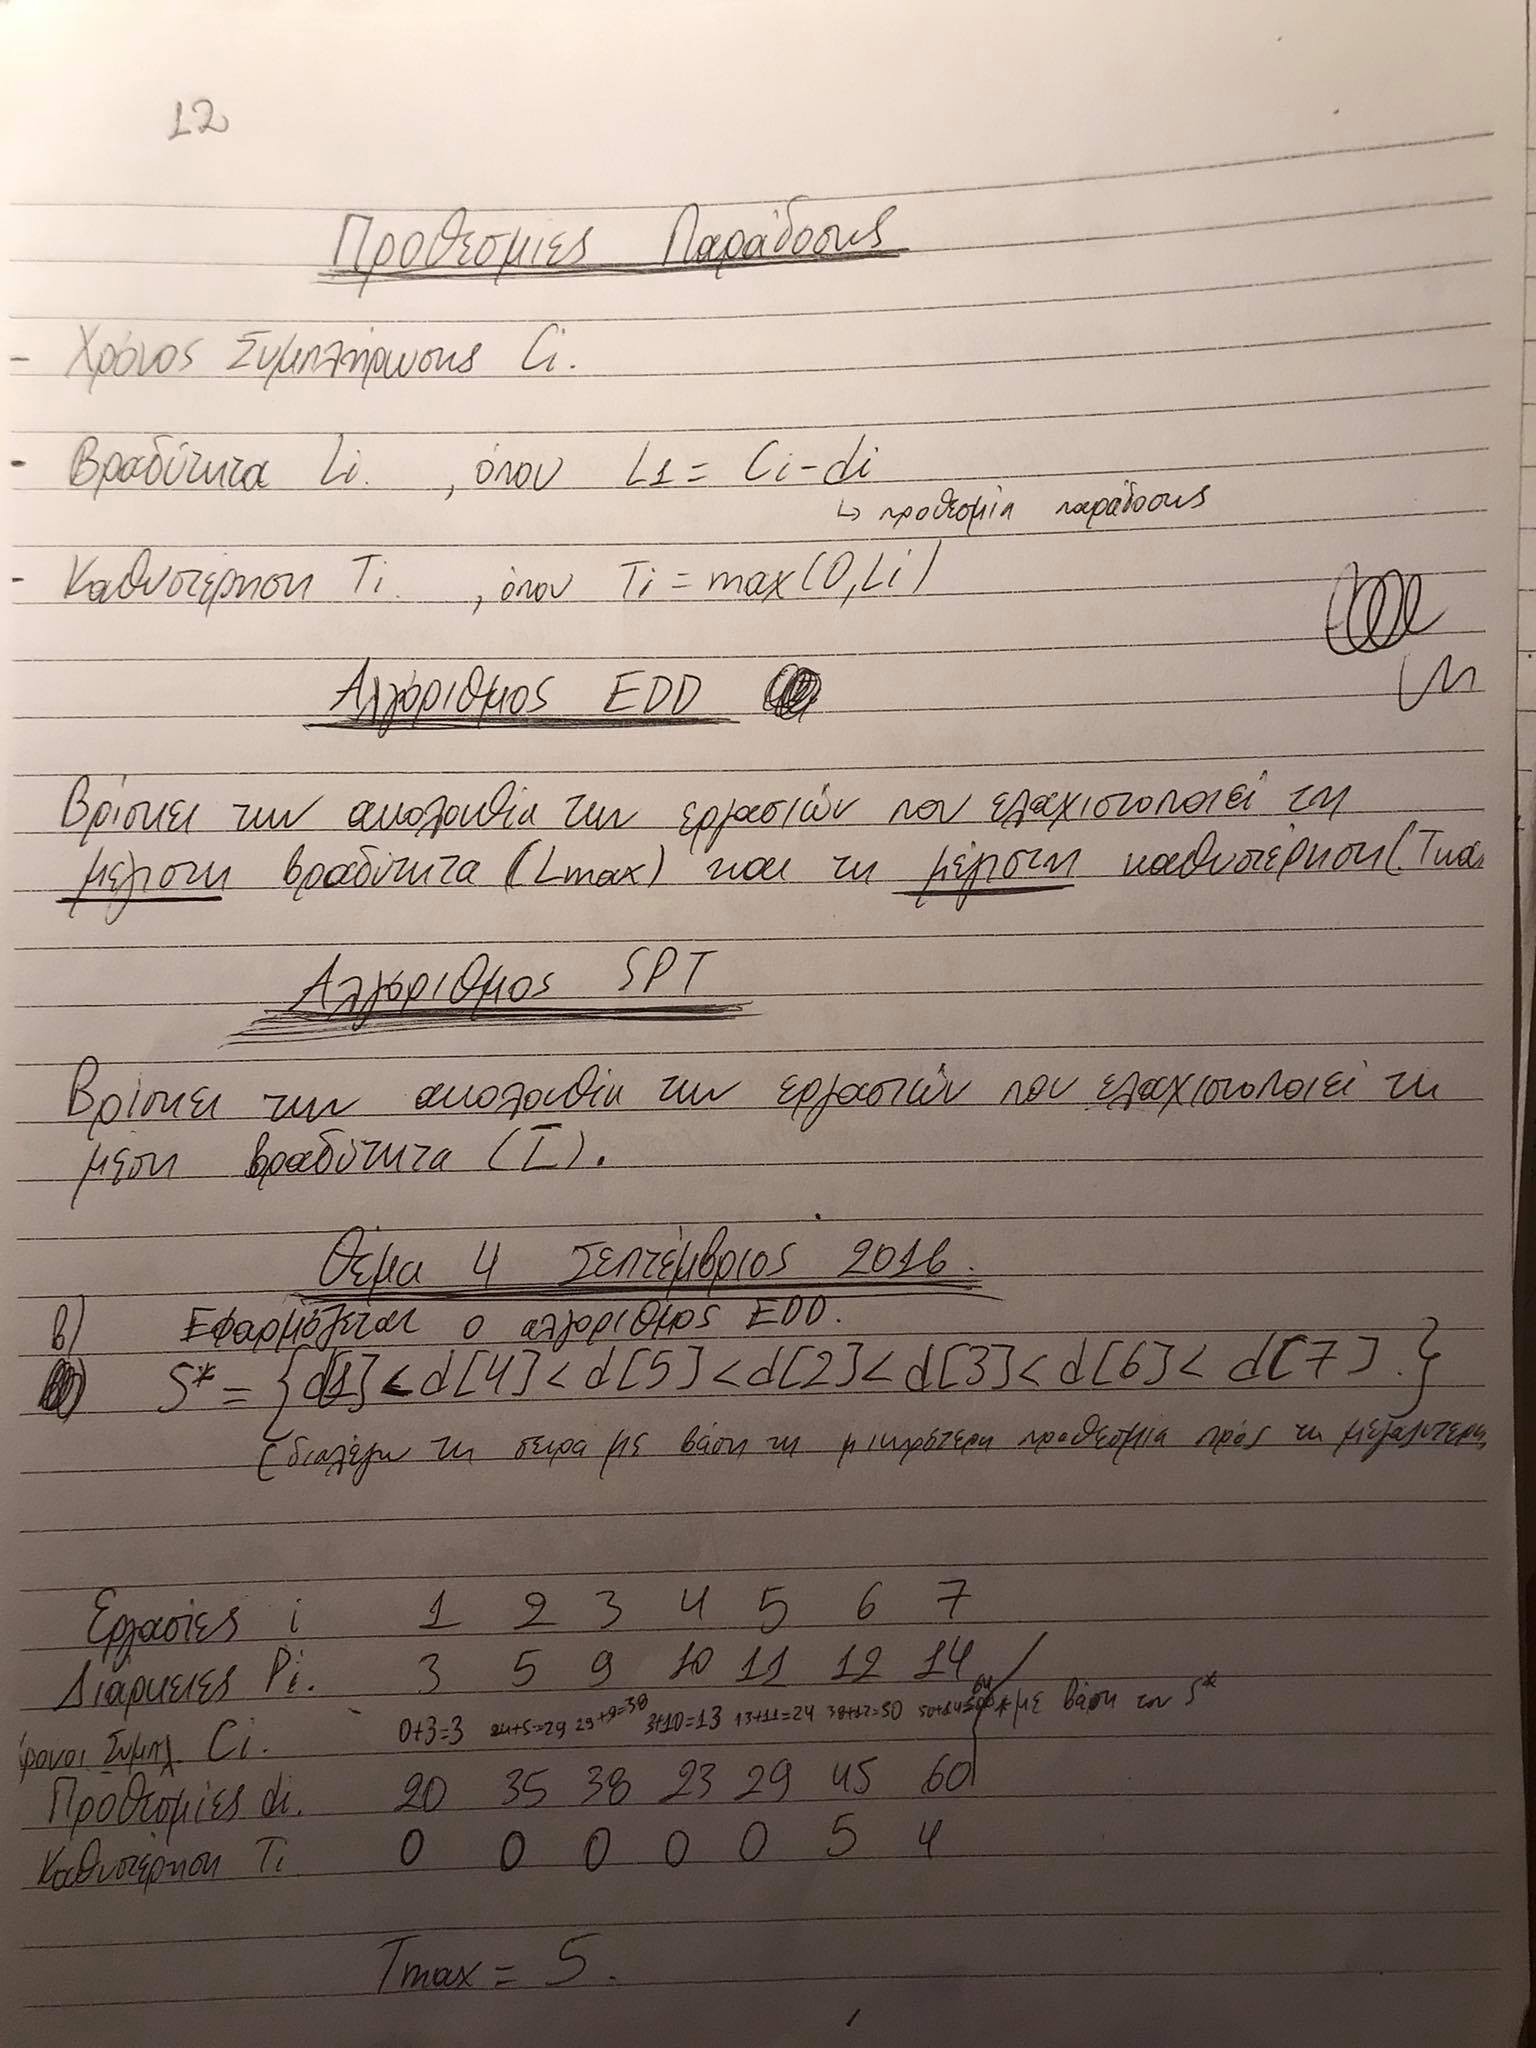 12
Προθεσμιες Παράδοσης
- Χρόνος Συμπλήρωσης Ci.
- Βραδύτητα Li. , όπου L1 = Ci - di
↳ προθεσμία παράδοσης
- Καθυστέρηση Ti. , όπου Ti = max(0, Li)
Αλγόριθμος EDD
Βρίσκει την ακολουθία την εργασιών που ελαχιστοποιεί τη
μέγιστη βραδύτητα (Lmax) και τη μέγιστη καθυστέρηση (Tmax
Αλγόριθμος SPT
Βρίσκει την ακολουθία την εργασιών που ελαχιστοποιεί τη
μέση βραδύτητα (L̅).
Θέμα 4 Σεπτέμβριος 2016.
β) Εφαρμόζεται ο αλγόριθμος EDD.
S* = {d[1] < d[4] < d[5] < d[2] < d[3] < d[6] < d[7] .}
(διαλέγω τη σειρα με βάση τη μικρότερη προθεσμία πρός τη μεγαλύτερη
Εργασίες i 1 2 3 4 5 6 7
Διάρκειες Pi. 3 5 9 10 11 12 14
Χρονοι Συμπλ. Ci. 0+3=3 24+5=29 29+9=38 3+10=13 13+11=24 38+12=50 50+14=64 * με βάση τον S*
Προθεσμίες di. 20 35 38 23 29 45 60
Καθυστέρηση Ti 0 0 0 0 0 5 4
Tmax = 5.